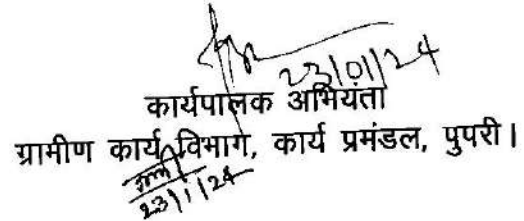 23/01/24
कार्यपालक अभियंता
ग्रामीण कार्य विभाग, कार्य प्रमंडल, पुपरी।
23/1/24